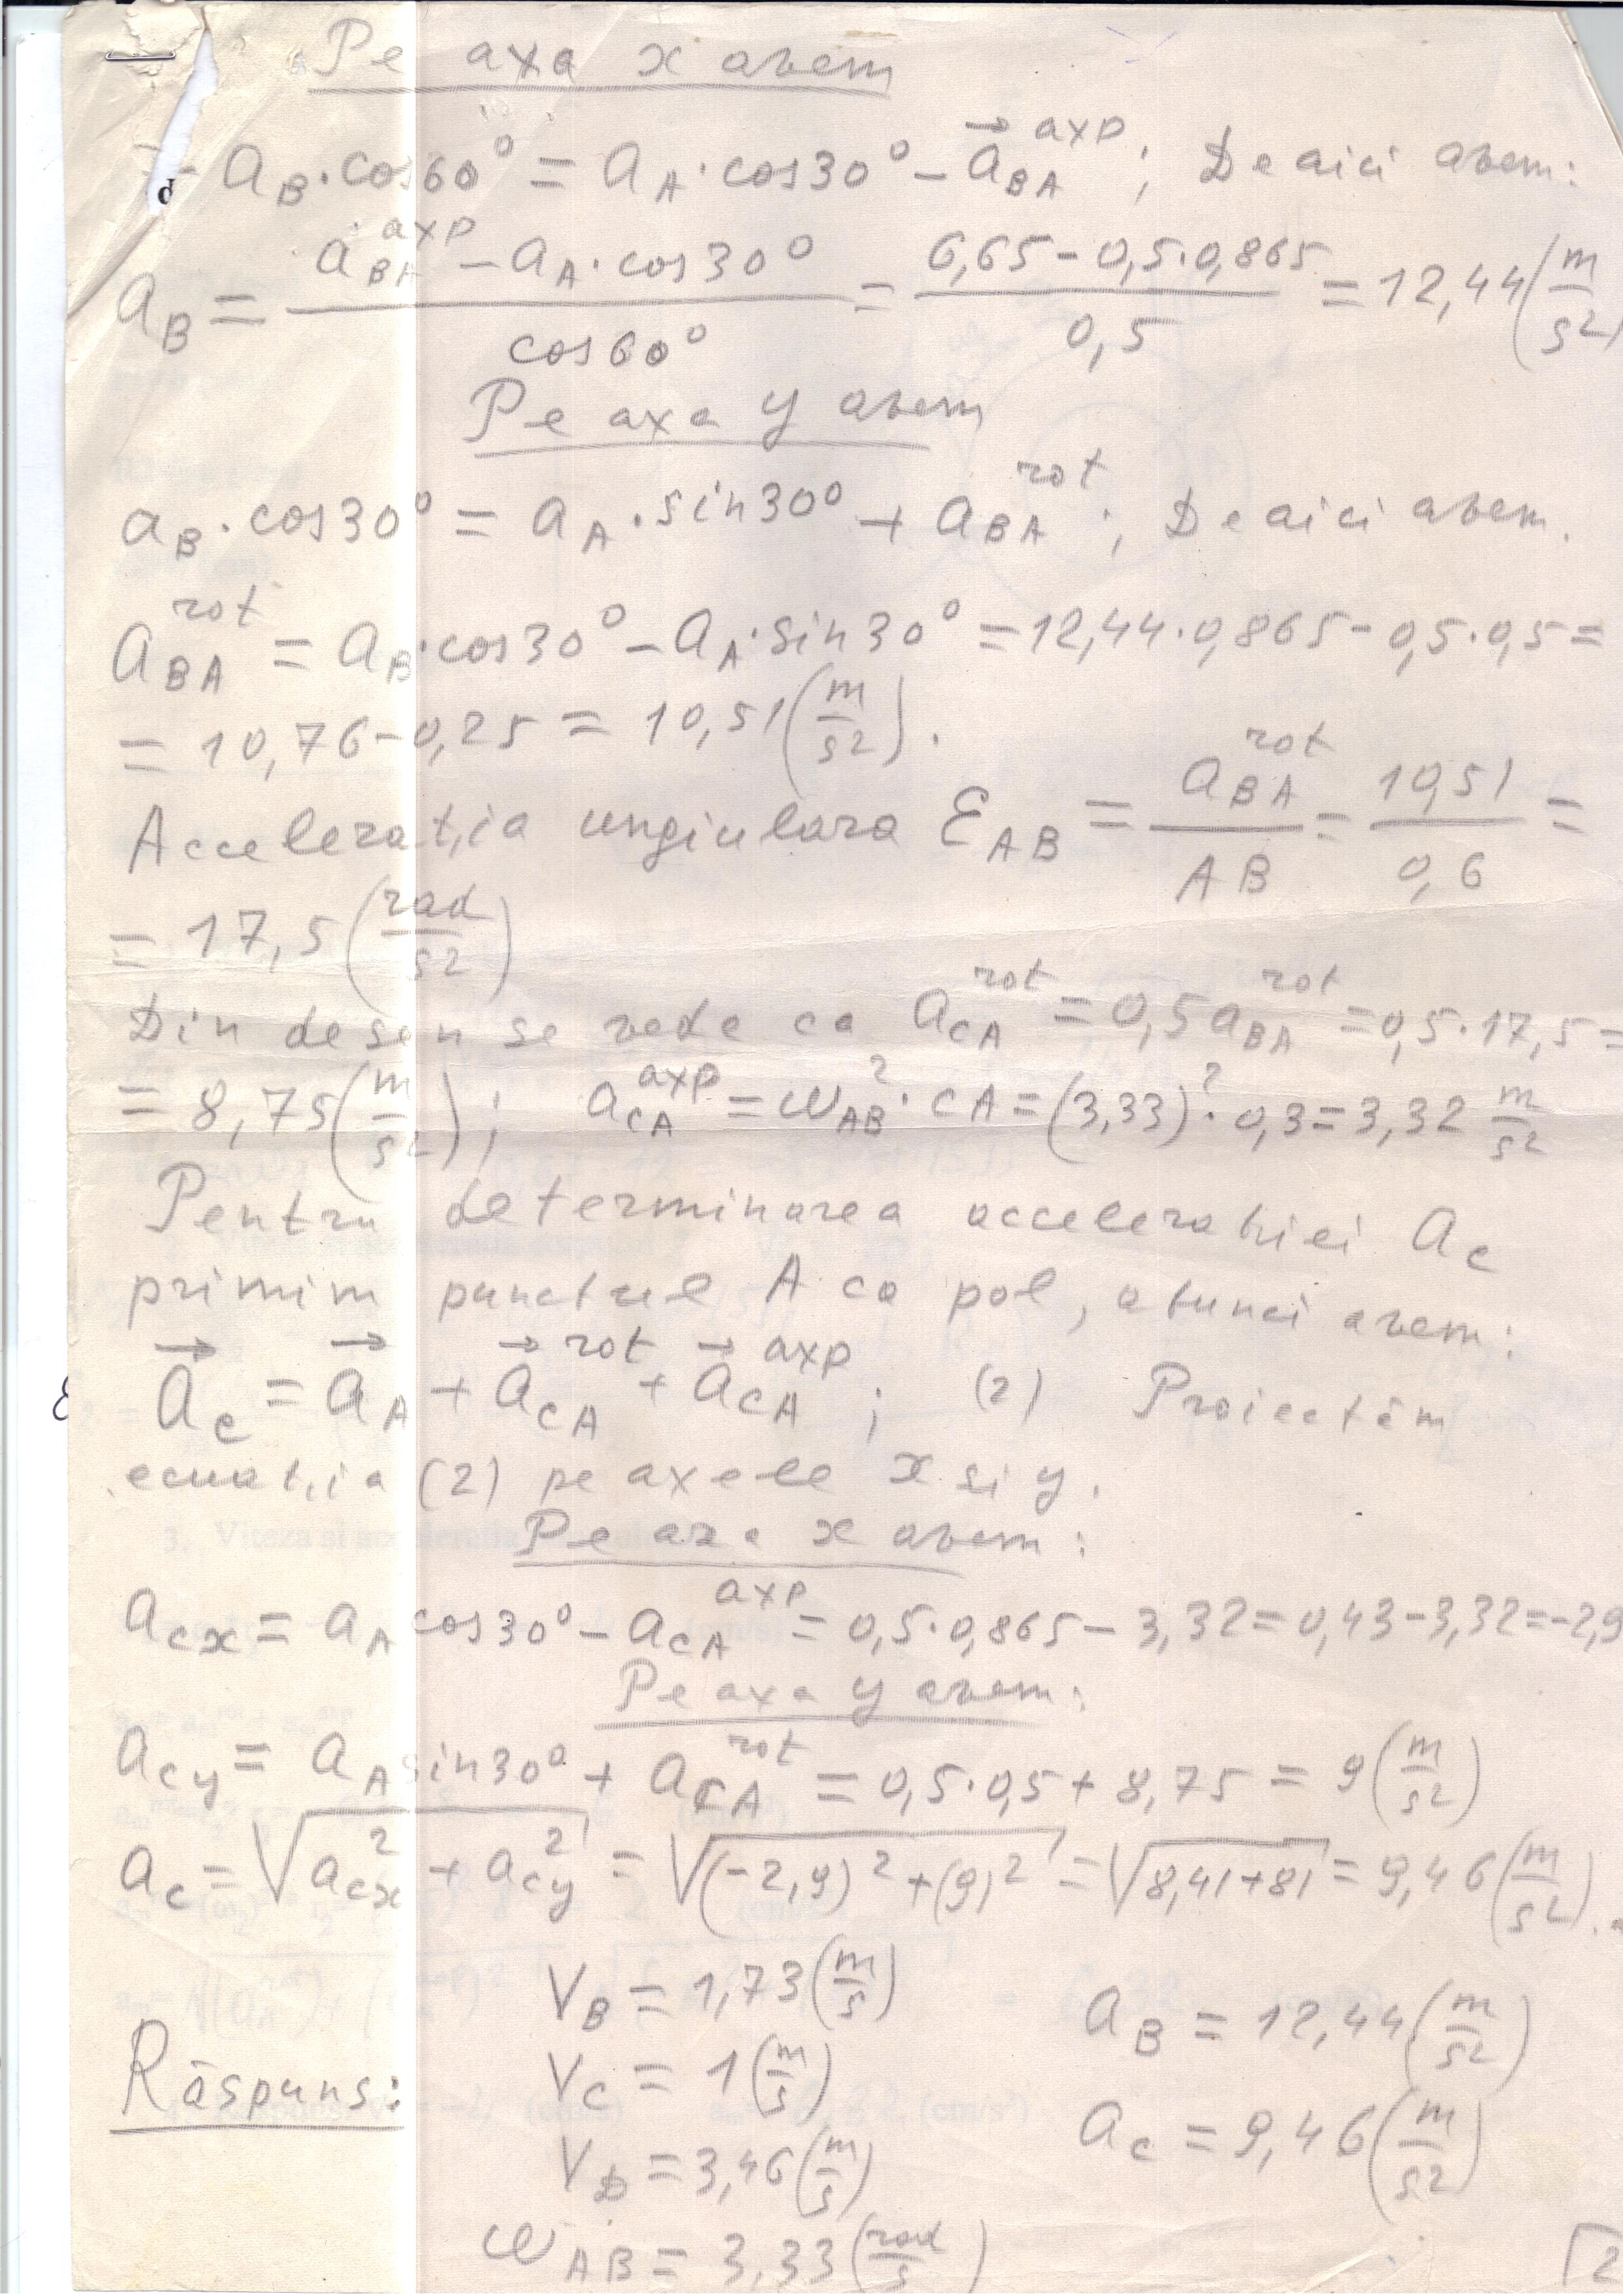 Pe axa x avem
- a_B·cos60° = a_A·cos30° - a⃗_BA^axp ; De aici avem:
a_B = (a_BA^axp - a_A·cos30°)/cos60° = (6,65 - 0,5·0,865)/0,5 = 12,44 (m/s²)
Pe axa y avem
a_B·cos30° = a_A·sin30° + a_BA^rot ; De aici avem.
a_BA^rot = a_B·cos30° - a_A·sin30° = 12,44·0,865 - 0,5·0,5 =
= 10,76 - 0,25 = 10,51 (m/s²).
Acceleratia ungiulara ε_AB = a_BA^rot/AB = 10,51/0,6 =
= 17,5 (rad/s²)
Din desen se vede ca a_CA^rot = 0,5a_BA^rot = 0,5·17,5 =
= 8,75 (m/s²) ; a_CA^axp = ω_AB²·CA = (3,33)²·0,3 = 3,32 m/s²
Pentru determinarea acceleratiei a_c
primim punctul A ca pol, atunci avem:
a⃗_c = a⃗_A + a⃗_CA^rot + a⃗_CA^axp ; (2) Proiectăm
ecuatia (2) pe axele x si y.
Pe axa x avem:
a_cx = a_A cos30° - a_CA^axp = 0,5·0,865 - 3,32 = 0,43 - 3,32 = -2,9
Pe axa y avem:
a_cy = a_A sin30° + a_CA^rot = 0,5·0,5 + 8,75 = 9 (m/s²)
a_c = √(a_cx² + a_cy²) = √((-2,9)² + (9)²) = √(8,41+81) = 9,46 (m/s²).
V_B = 1,73 (m/s) a_B = 12,44 (m/s²)
Răspuns: V_C = 1 (m/s) a_c = 9,46 (m/s²)
V_D = 3,46 (m/s)
ω_AB = 3,33 (rad/s)